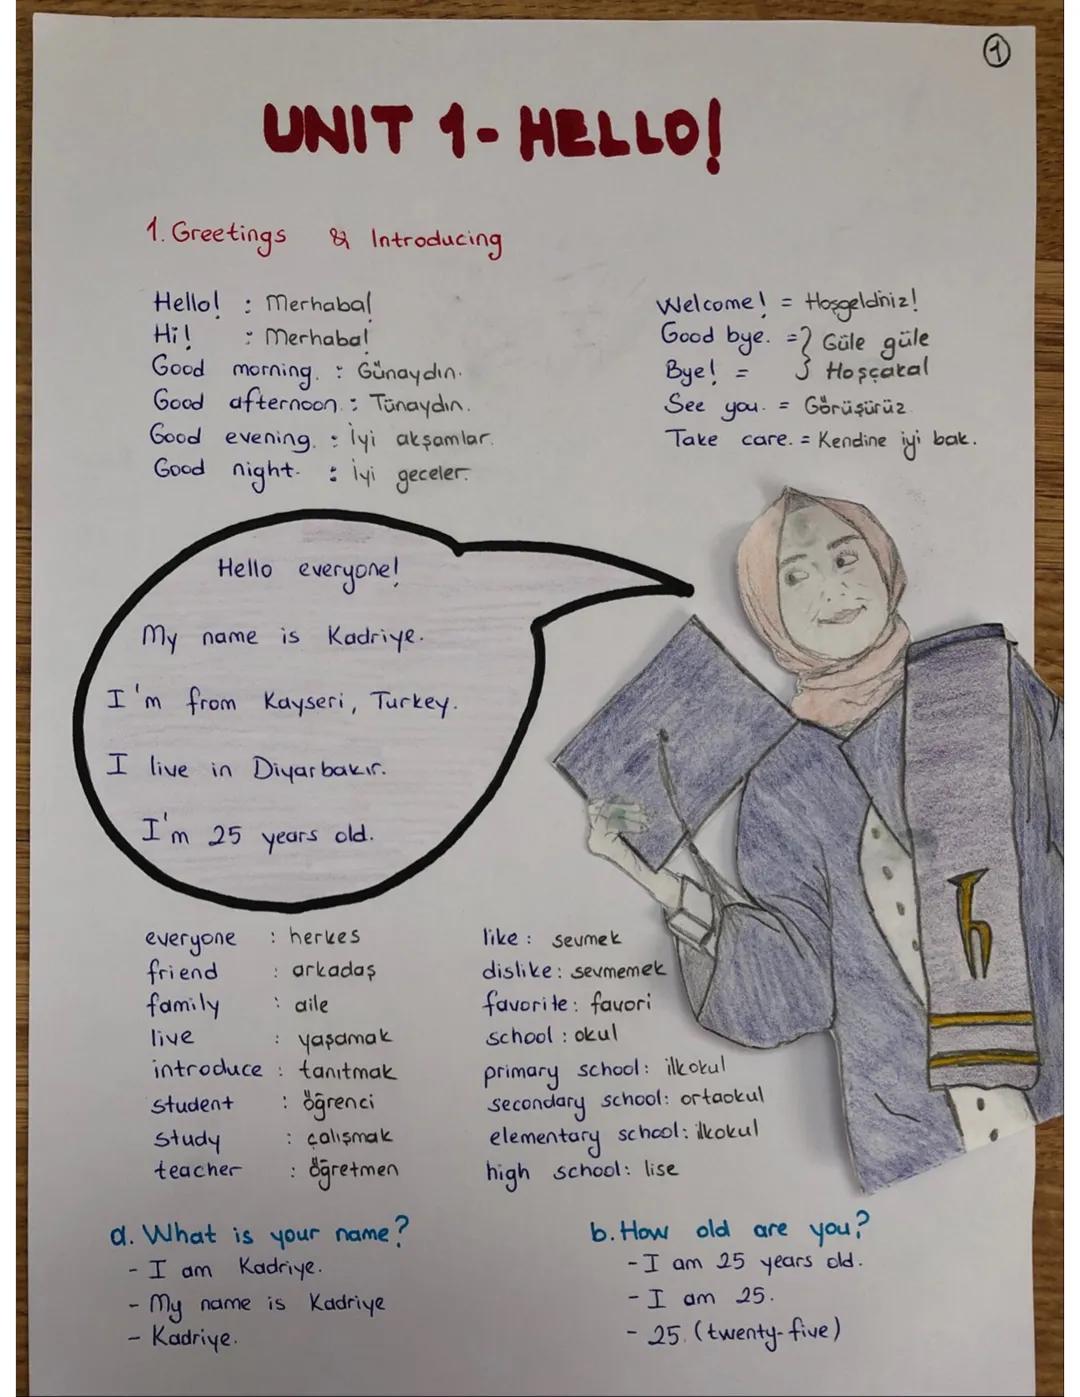 1
UNIT 1- HELLO!
1. Greetings & Introducing
Hello! : Merhaba!
Hi! : Merhaba!
Good morning. : Günaydın.
Good afternoon. : Tünaydın.
Good evening. : İyi akşamlar.
Good night. : İyi geceler.
Welcome! = Hoşgeldiniz!
Good bye. =} Güle güle
Bye! = } Hoşçakal
See you. = Görüşürüz.
Take care. = Kendine iyi bak.
Hello everyone!
My name is Kadriye.
I'm from Kayseri, Turkey.
I live in Diyarbakır.
I'm 25 years old.
everyone : herkes
friend : arkadaş
family : aile
live : yaşamak
introduce : tanıtmak
student : öğrenci
study : çalışmak
teacher : öğretmen
like : sevmek
dislike : sevmemek
favorite : favori
school : okul
primary school : ilkokul
secondary school : ortaokul
elementary school : ilkokul
high school : lise
a. What is your name?
- I am Kadriye.
- My name is Kadriye
- Kadriye.
b. How old are you?
- I am 25 years old.
- I am 25.
- 25. (twenty-five)